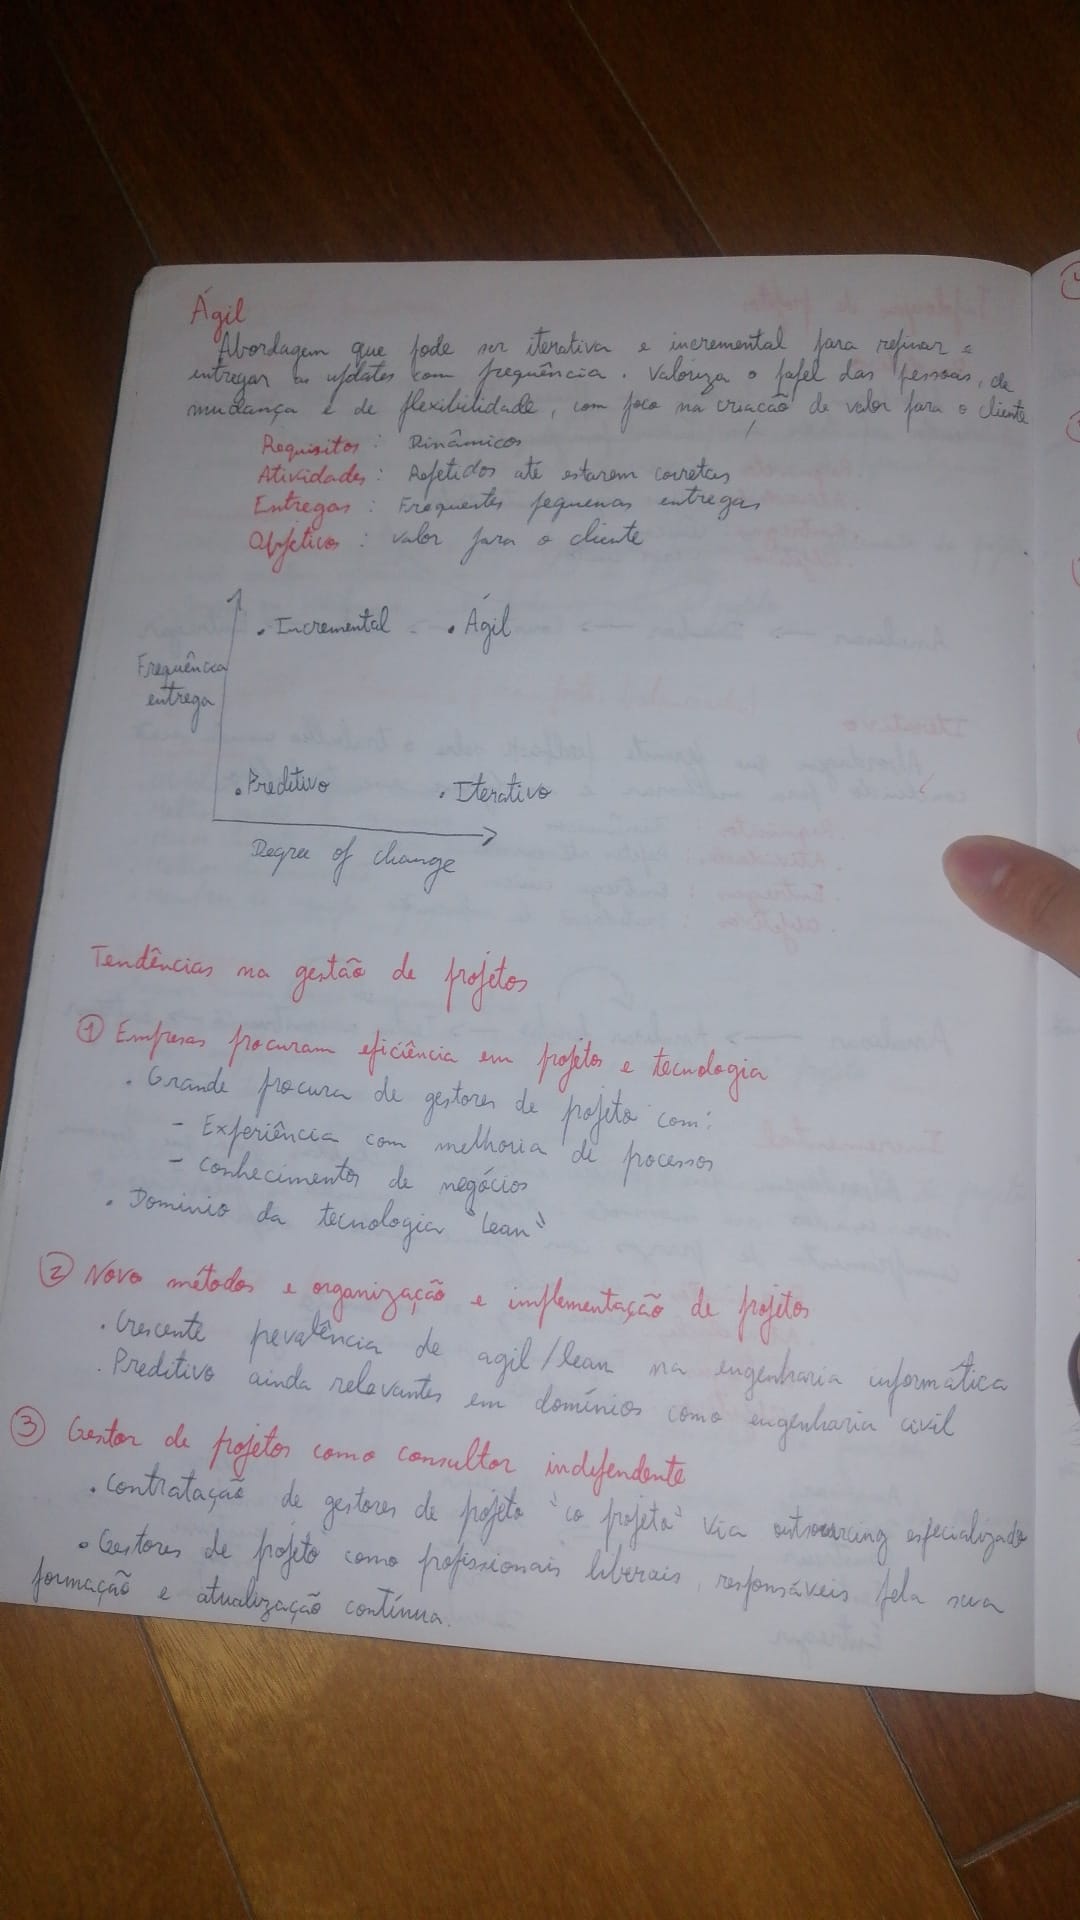 Ágil
Abordagem que pode ser iterativa e incremental para refinar e
entregar os updates com frequência. Valoriza o papel das pessoas, da
mudança e de flexibilidade, com foco na criação de valor para o cliente
Requisitos : Dinâmicos
Atividades : Repetidos até estarem corretas
Entregas : Frequentes pequenas entregas
Objetivo : valor para o cliente
. Incremental . Ágil
Frequência
entrega
. Preditivo . Iterativo
Degree of change
Tendências na gestão de projetos
① Empresas procuram eficiência em projetos e tecnologia
. Grande procura de gestores de projeto com:
- Experiência com melhoria de processos
- conhecimentos de negócios
. Dominio da tecnologia "lean"
② Novo métodos e organização e implementação de projetos
. Crescente pevalência de agil/lean na engenharia informática
. Preditivo ainda relevantes em domínios como engenharia civil
③ Gestor de projetos como consultor independente
. Contratação de gestores de projeto "co projeto" via outsourcing especializado
. Gestores de projeto como profissionais liberais, responsáveis pela sua
formação e atualização contínua.